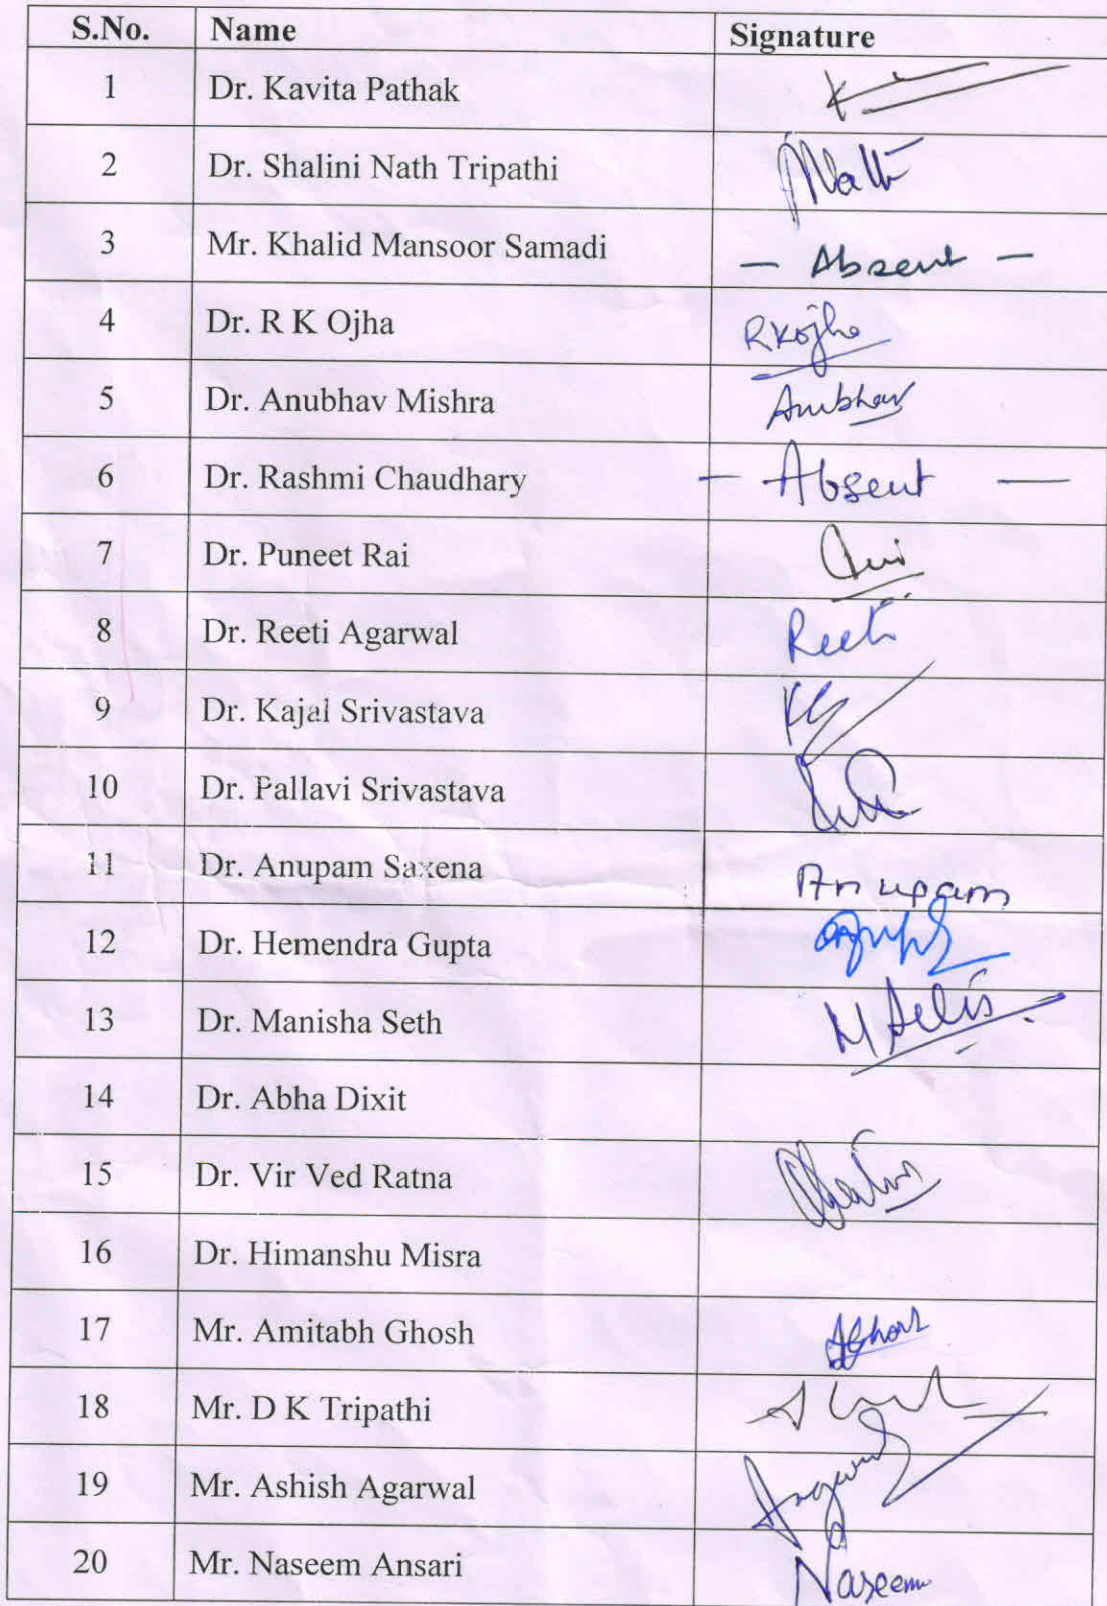 S.No. Name Signature
1 Dr. Kavita Pathak
2 Dr. Shalini Nath Tripathi
3 Mr. Khalid Mansoor Samadi — Absent —
4 Dr. R K Ojha RKOjha
5 Dr. Anubhav Mishra Anubhav
6 Dr. Rashmi Chaudhary — Absent —
7 Dr. Puneet Rai
8 Dr. Reeti Agarwal Reeti
9 Dr. Kajal Srivastava
10 Dr. Pallavi Srivastava
11 Dr. Anupam Saxena Anupam
12 Dr. Hemendra Gupta
13 Dr. Manisha Seth
14 Dr. Abha Dixit
15 Dr. Vir Ved Ratna
16 Dr. Himanshu Misra
17 Mr. Amitabh Ghosh
18 Mr. D K Tripathi
19 Mr. Ashish Agarwal
20 Mr. Naseem Ansari Naseem